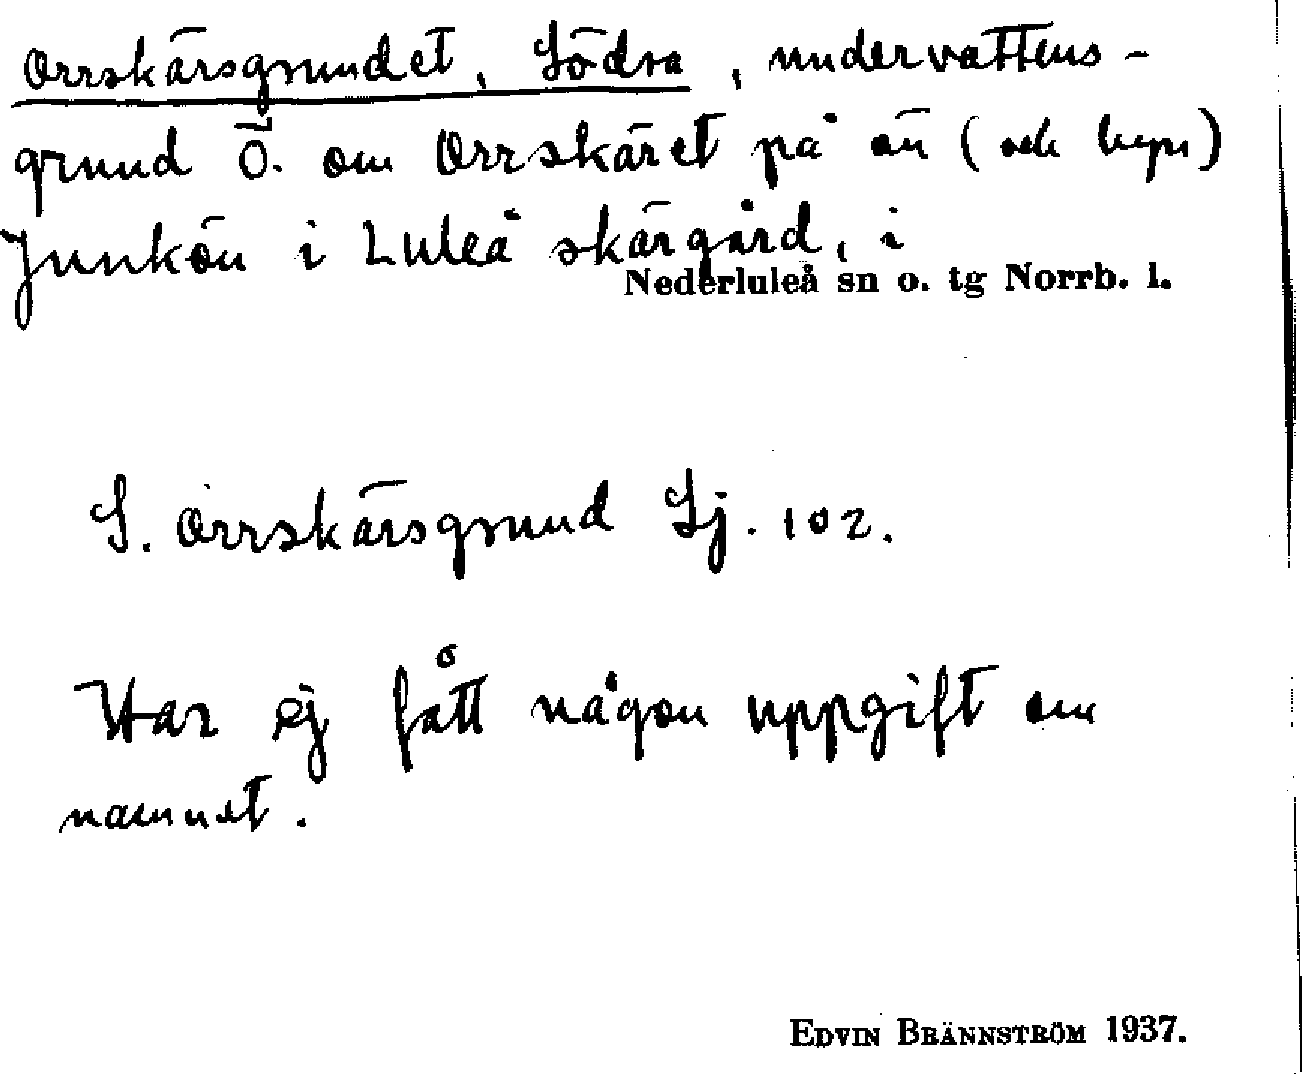 Orrskärsgrundet, Södra, undervattens-
grund Ö. om Orrskäret på ön (och byn)
Junkön i Luleå skärgård, i
Nederluleå sn o. tg Norrb. l.
S. Orrskärsgrund Sj. 102.
Har ej fått någon uppgift om
namnet.
EDVIN BRÄNNSTRÖM 1937.